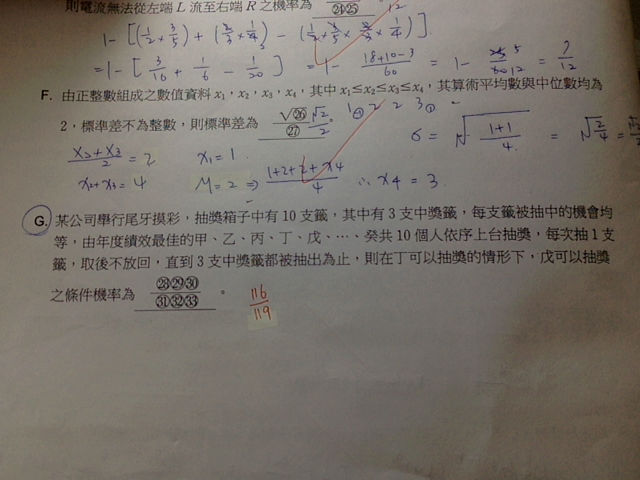 則電流無法從左端 L 流至右端 R 之機率為 ㉔㉕
12
1-[(1/2×3/5)+(2/3×1/4)-(1/2×3/5×2/3×1/4)]
=1-[3/10+1/6-1/20] = 1- 18+10-3/60 = 1- 25/60 5/12 = 7/12
F. 由正整數組成之數值資料 x₁，x₂，x₃，x₄，其中 x₁≤x₂≤x₃≤x₄，其算術平均數與中位數均為
2，標準差不為整數，則標準差為 √㉖/㉗ √2/2。 1 2 2 3
x₂+x₃/2 = 2 x₁=1. 6 = √1+1/4 = √2/4 =
x₂+x₃=4 M=2 ⇒ 1+2+2+x4/4 ∴ x4=3.
G. 某公司舉行尾牙摸彩，抽獎箱子中有 10 支籤，其中有 3 支中獎籤，每支籤被抽中的機會均
等，由年度績效最佳的甲、乙、丙、丁、戊、…、癸共 10 個人依序上台抽獎，每次抽 1 支
籤，取後不放回，直到 3 支中獎籤都被抽出為止，則在丁可以抽獎的情形下，戊可以抽獎
之條件機率為 ㉘㉙㉚/㉛㉜㉝ 。 116/119